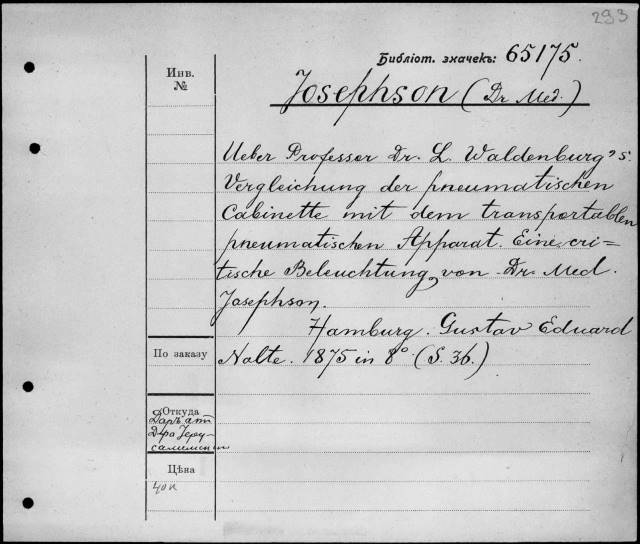 293
Библіот. значекъ: 65175.
Инв.
№
Josephson (Dr. Med.)
Ueber Professor Dr. L. Waldenburg's
Vergleichung der pneumatischen
Cabinette mit dem transportablen
pneumatischen Apparat. Eine cri-
tische Beleuchtung von Dr. Med.
Josephson.
Hamburg. Gustav Eduard
По заказу
Nolte. 1875 in 8° (S. 36.)
Откуда
Даръ отъ
Д-ра Iеру-
салимск
Цѣна
40 к